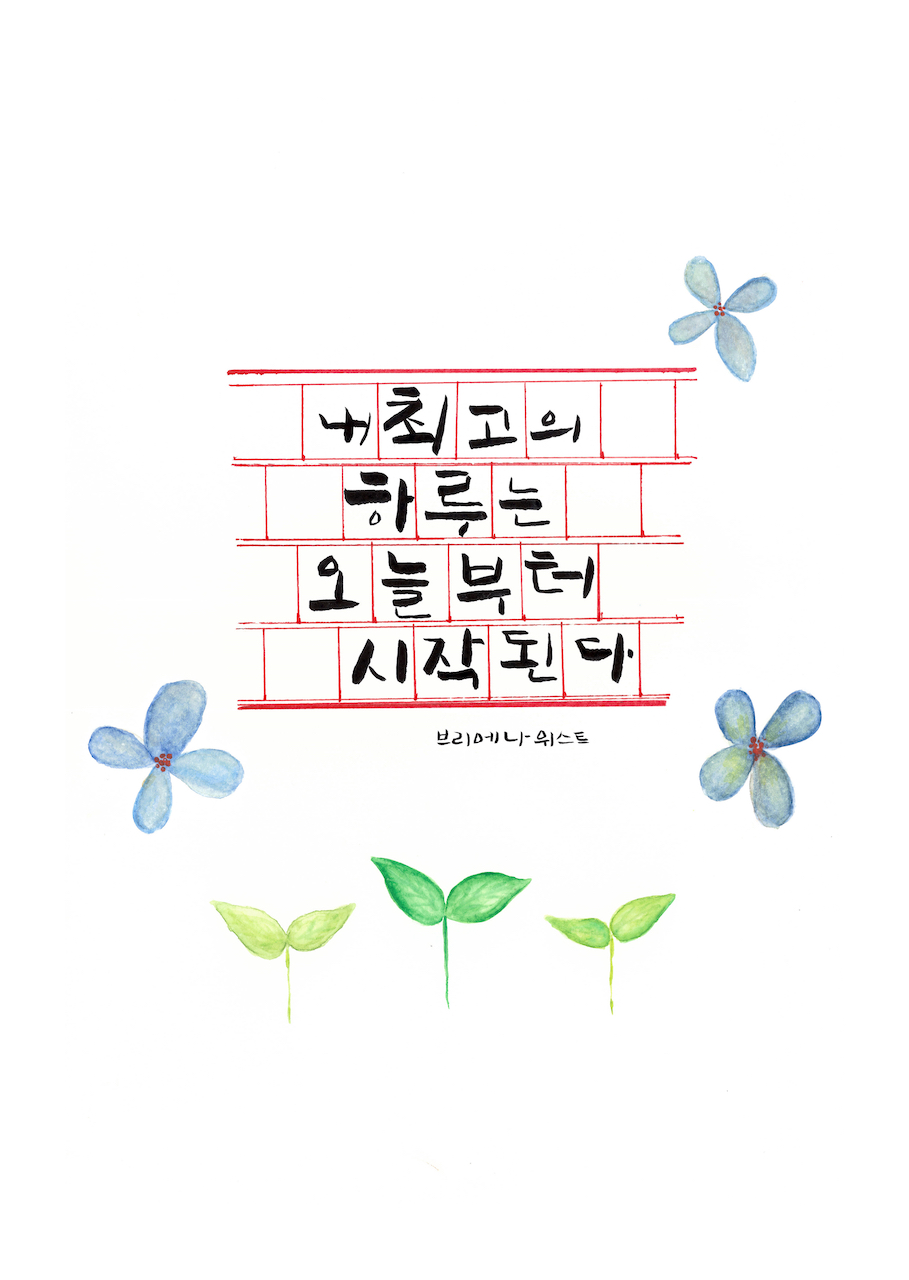 내 최고의
하루는
오늘부터
시작된다
브리에나 위스트